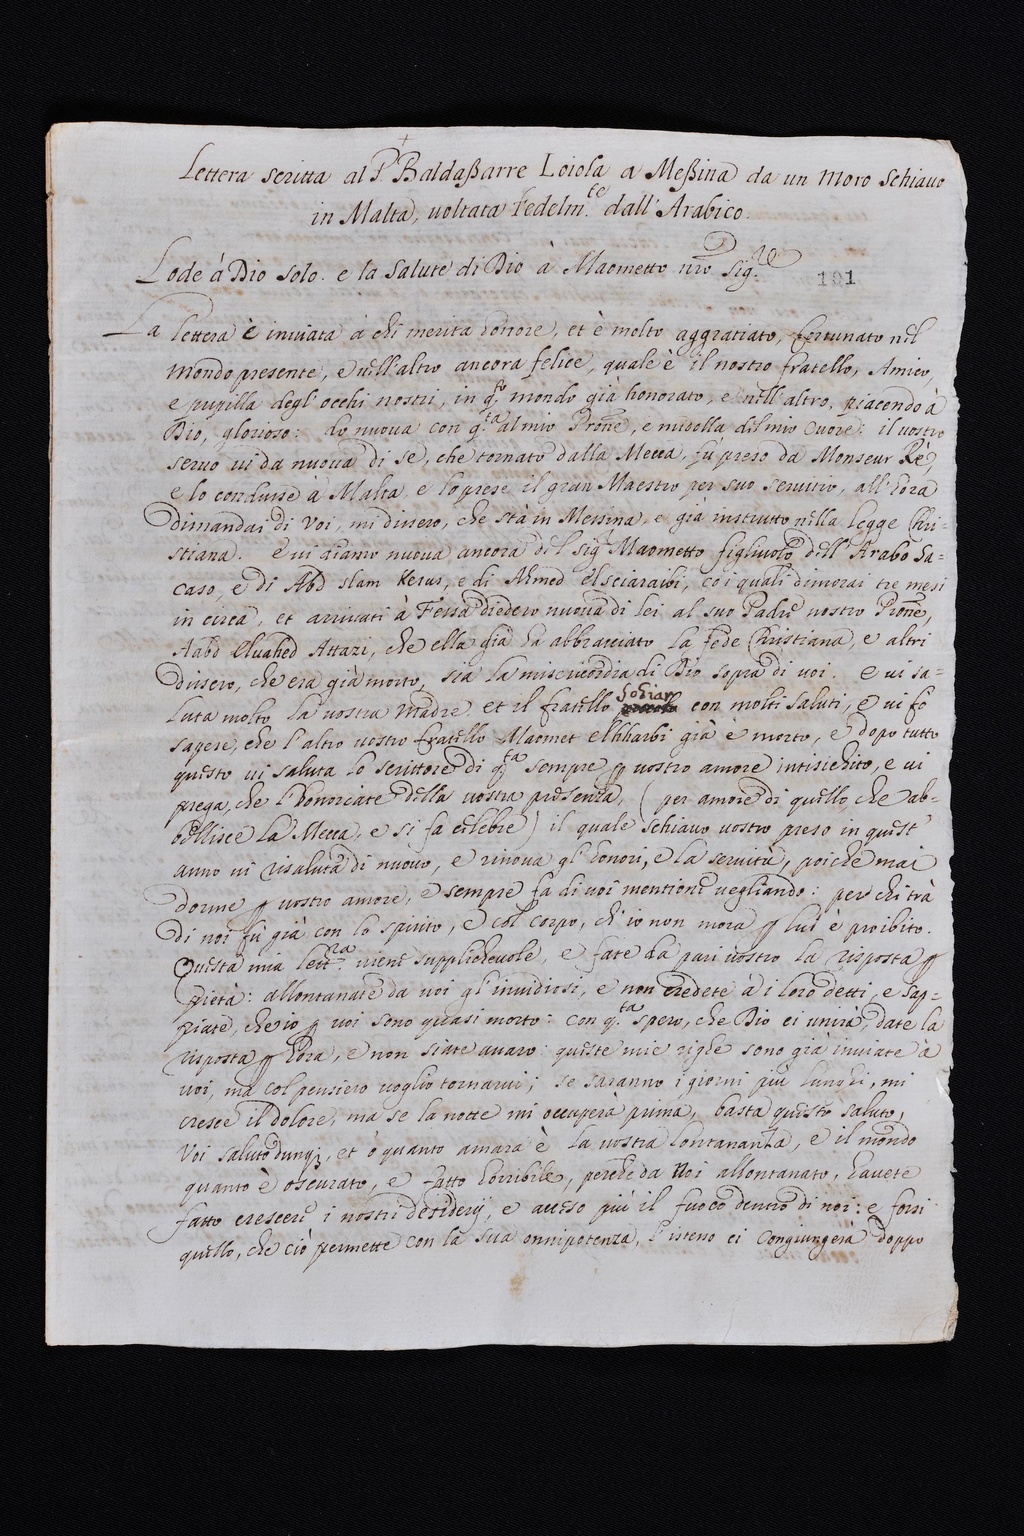 Lettera scritta al P. Baldaßarre Loiola a Meßina da un Moro schiauo
in Malta, uoltata Fedelm.te dall'Arabico.
Lode à Dio solo. e la salute di Dio à Maometto nro sig.re
191
La lettera è inuiata à chi merita honore, et è molto aggratiato, fortunato nel
mondo presente, e nell'altro ancora felice, quale è il nostro fratello, Amico,
e pupilla degl'occhi nostri, in q.sto mondo già honorato, e nell'altro, piacendo à
Dio, glorioso: do nuoua con q.ta al mio Prone, e midolla del mio Cuore: il uostro
seruo ui da nuoua di se, che tornato dalla Mecca, fù preso da Monseur Rè,
e lo condusse à Malta, e lo prese il gran Maestro per suo seruitio, all'hora
dimandai di Voi, mi dissero, che stà in Messina, e già instrutto nella legge Chri-
stiana. e ui diamo nuoua ancora del sig.r Maometto figliuolo dell'Arabo Ha-
caso, e di Abd slam Kerus, e di Ahmed elsciaraibi, co i quali dimorai tre mesi
in circa, et arriuati à Fessa diedero nuoua di lei al suo Padre nostro Prone,
Aabd Eluahed Attazi, che ella già ha abbracciato la fede Christiana, e altri
dissero, che era già morto, sia la misericordia di Dio sopra di uoi. e ui sa-
luta molto la uostra Madre, et il fratello Sohiar con molti saluti, e ui fo
sapere, che l'altro uostro fratello Maomet elhharbi già è morto, e dopo tutto
questo ui saluta lo scrittore di q.ta sempre p uostro amore intisichito, e ui
prega, che l'honoriate della uostra presenza, (per amore di quello che ab-
bellisce la Mecca, e si fa celebre) il quale schiauo uostro preso in quest'
anno ui risaluta di nuouo, e rinoua gl'honori, e la seruitù, poiche mai
dorme p uostro amore, e sempre fa di uoi mentione uegliando: perche trà
di noi fù già con lo spirito, e col corpo, ch'io non mora p lui è proibito.
Questa mia lett.ra uiene supplicheuole, e fate da pari uostro la risposta p
pietà: allontanate da uoi gl'inuidiosi, e non credete à i loro detti, e sap-
piate, che io p uoi sono quasi morto: con q.ta spero, che Dio ci unirà, date la
risposta p hora, e non siate auaro: queste mie righe sono già inuiate à
uoi, ma col pensiero uoglio tornarui; se saranno i giorni più lunghi, mi
cresce il dolore, ma se la notte mi occuperà prima, basta questo saluto,
Voi saluto dunq;, et ò quanto amara è la uostra lontananza, e il mondo
quanto è oscurato, e fatto horribile, perche da Noi allontanato, hauete
fatto crescere i nostri desiderij, e acceso più il fuoco dentro di noi: e forsi
quello, che ciò permette con la sua onnipotenza, l'istesso ci congiungerà doppo